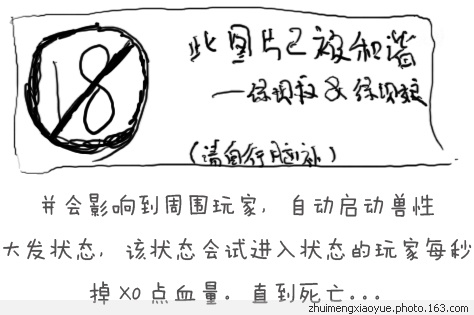 18
此图片已被和谐
(请自行脑补)
并会影响到周围玩家,自动启动兽性
大发状态,该状态会试进入状态的玩家每秒
掉X0点血量。直到死亡...
zhuimengxiaoyue.photo.163.com